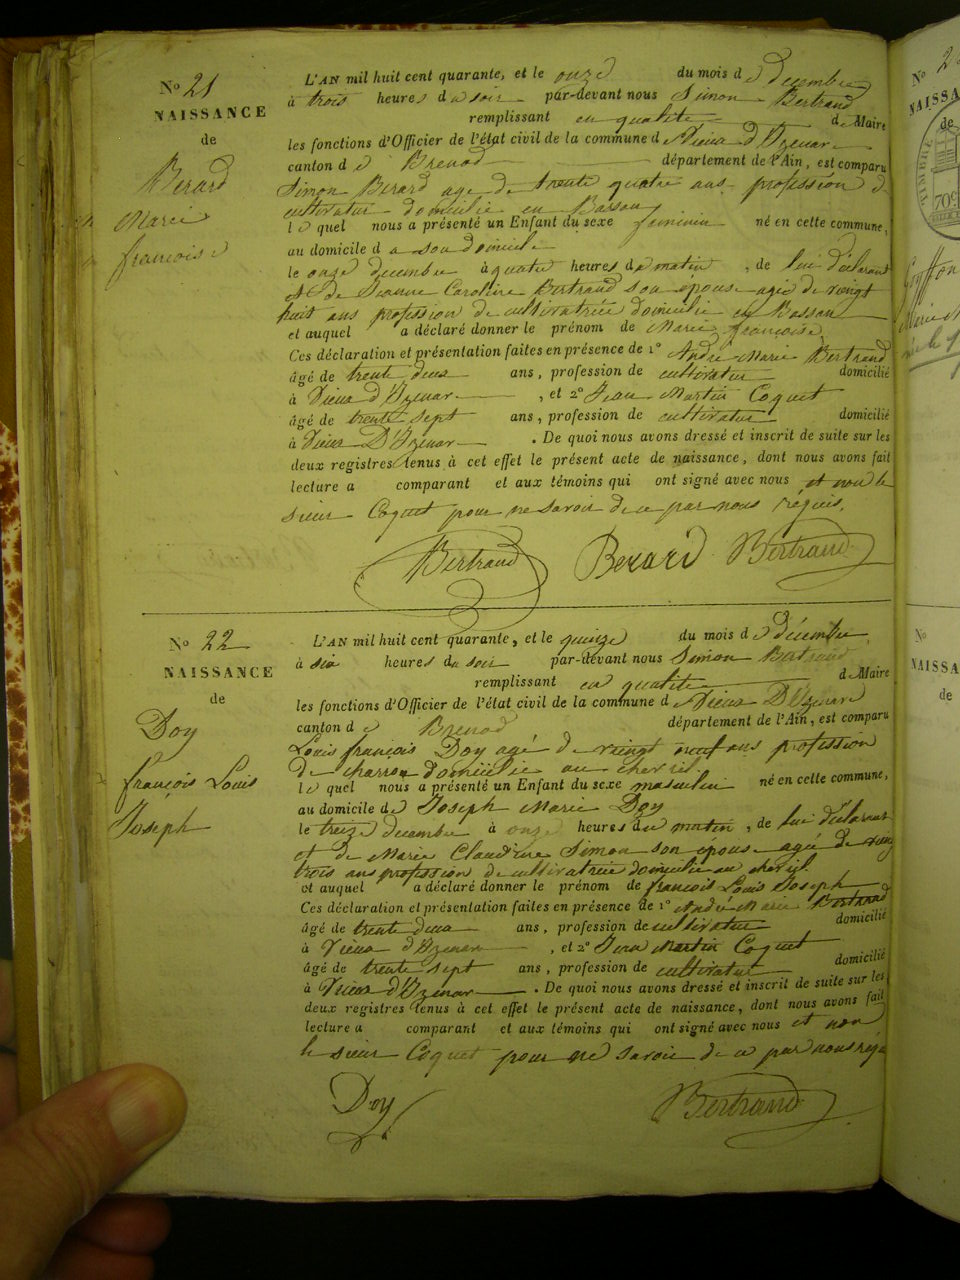 No 21
NAISSANCE
de
Berard
Marie
françoise
L'AN mil huit cent quarante, et le onze du mois de decembre
à trois heures du soir par-devant nous Simon Bertrand
remplissant en qualité de Maire
les fonctions d'Officier de l'état civil de la commune de Vieux d'Izenave
canton de Brenod département de l'Ain, est comparu
Simon Berard age de trente quatre ans profession de
cultivateur domicilie en
le quel nous a présenté un Enfant du sexe feminin né en cette commune,
au domicile d a son domicile
le onze decembre à quatre heures du matin, de lui déclarant
et de Jeanne Caroline Bertrand son epouse agée de vingt
huit ans profession de cultivatrice domicilie en
et auquel a déclaré donner le prénom de Marie françoise
Ces déclaration et présentation faites en présence de 1o André Marie Bertrand
âgé de trente deux ans, profession de cultivateur domicilié
à Vieux d'Izenave, et 2o Jean Martin Coquet
âgé de trente sept ans, profession de cultivateur domicilié
à Vieux D'Izenave. De quoi nous avons dressé et inscrit de suite sur les
deux registres tenus à cet effet le présent acte de naissance, dont nous avons fait
lecture a comparant et aux témoins qui ont signé avec nous et non le
sieur Coquet pour ne savoir de ce par nous réquis.
Bertrand Berard Bertrand
No 22
NAISSANCE
de
Doy
françois Louis
Joseph
L'AN mil huit cent quarante, et le quinze du mois de décembre
à six heures du soir par-devant nous Simon Bertrand
remplissant en qualité de Maire
les fonctions d'Officier de l'état civil de la commune de Vieux D'Izenave
canton de Brenod département de l'Ain, est comparu
Louis françois Doy agé de vingt neuf ans profession
de charron domicilie au chevril
le quel nous a présenté un Enfant du sexe masculin né en cette commune,
au domicile de Joseph Marie Doy
le treize decembre à onze heures du matin, de lui déclarant
et de Marie Claudine Simon son epouse agée de vingt
trois ans profession de cultivatrice domicilie au chevril
et auquel a déclaré donner le prénom de françois Louis Joseph
Ces déclaration et présentation faites en présence de 1o André Marie Bertrand
âgé de trente deux ans, profession de cultivateur domicilié
à Vieux d'Izenave, et 2o Jean Martin Coquet
âgé de trente sept ans, profession de cultivateur domicilié
à Vieux d'Izenave. De quoi nous avons dressé et inscrit de suite sur les
deux registres tenus à cet effet le présent acte de naissance, dont nous avons fait
lecture a comparant et aux témoins qui ont signé avec nous et non
le sieur Coquet pour ne savoir de ce par nous
Doy Bertrand
No 2
NAISSA
de
TIMBRE
70c
No
NAISSA
de